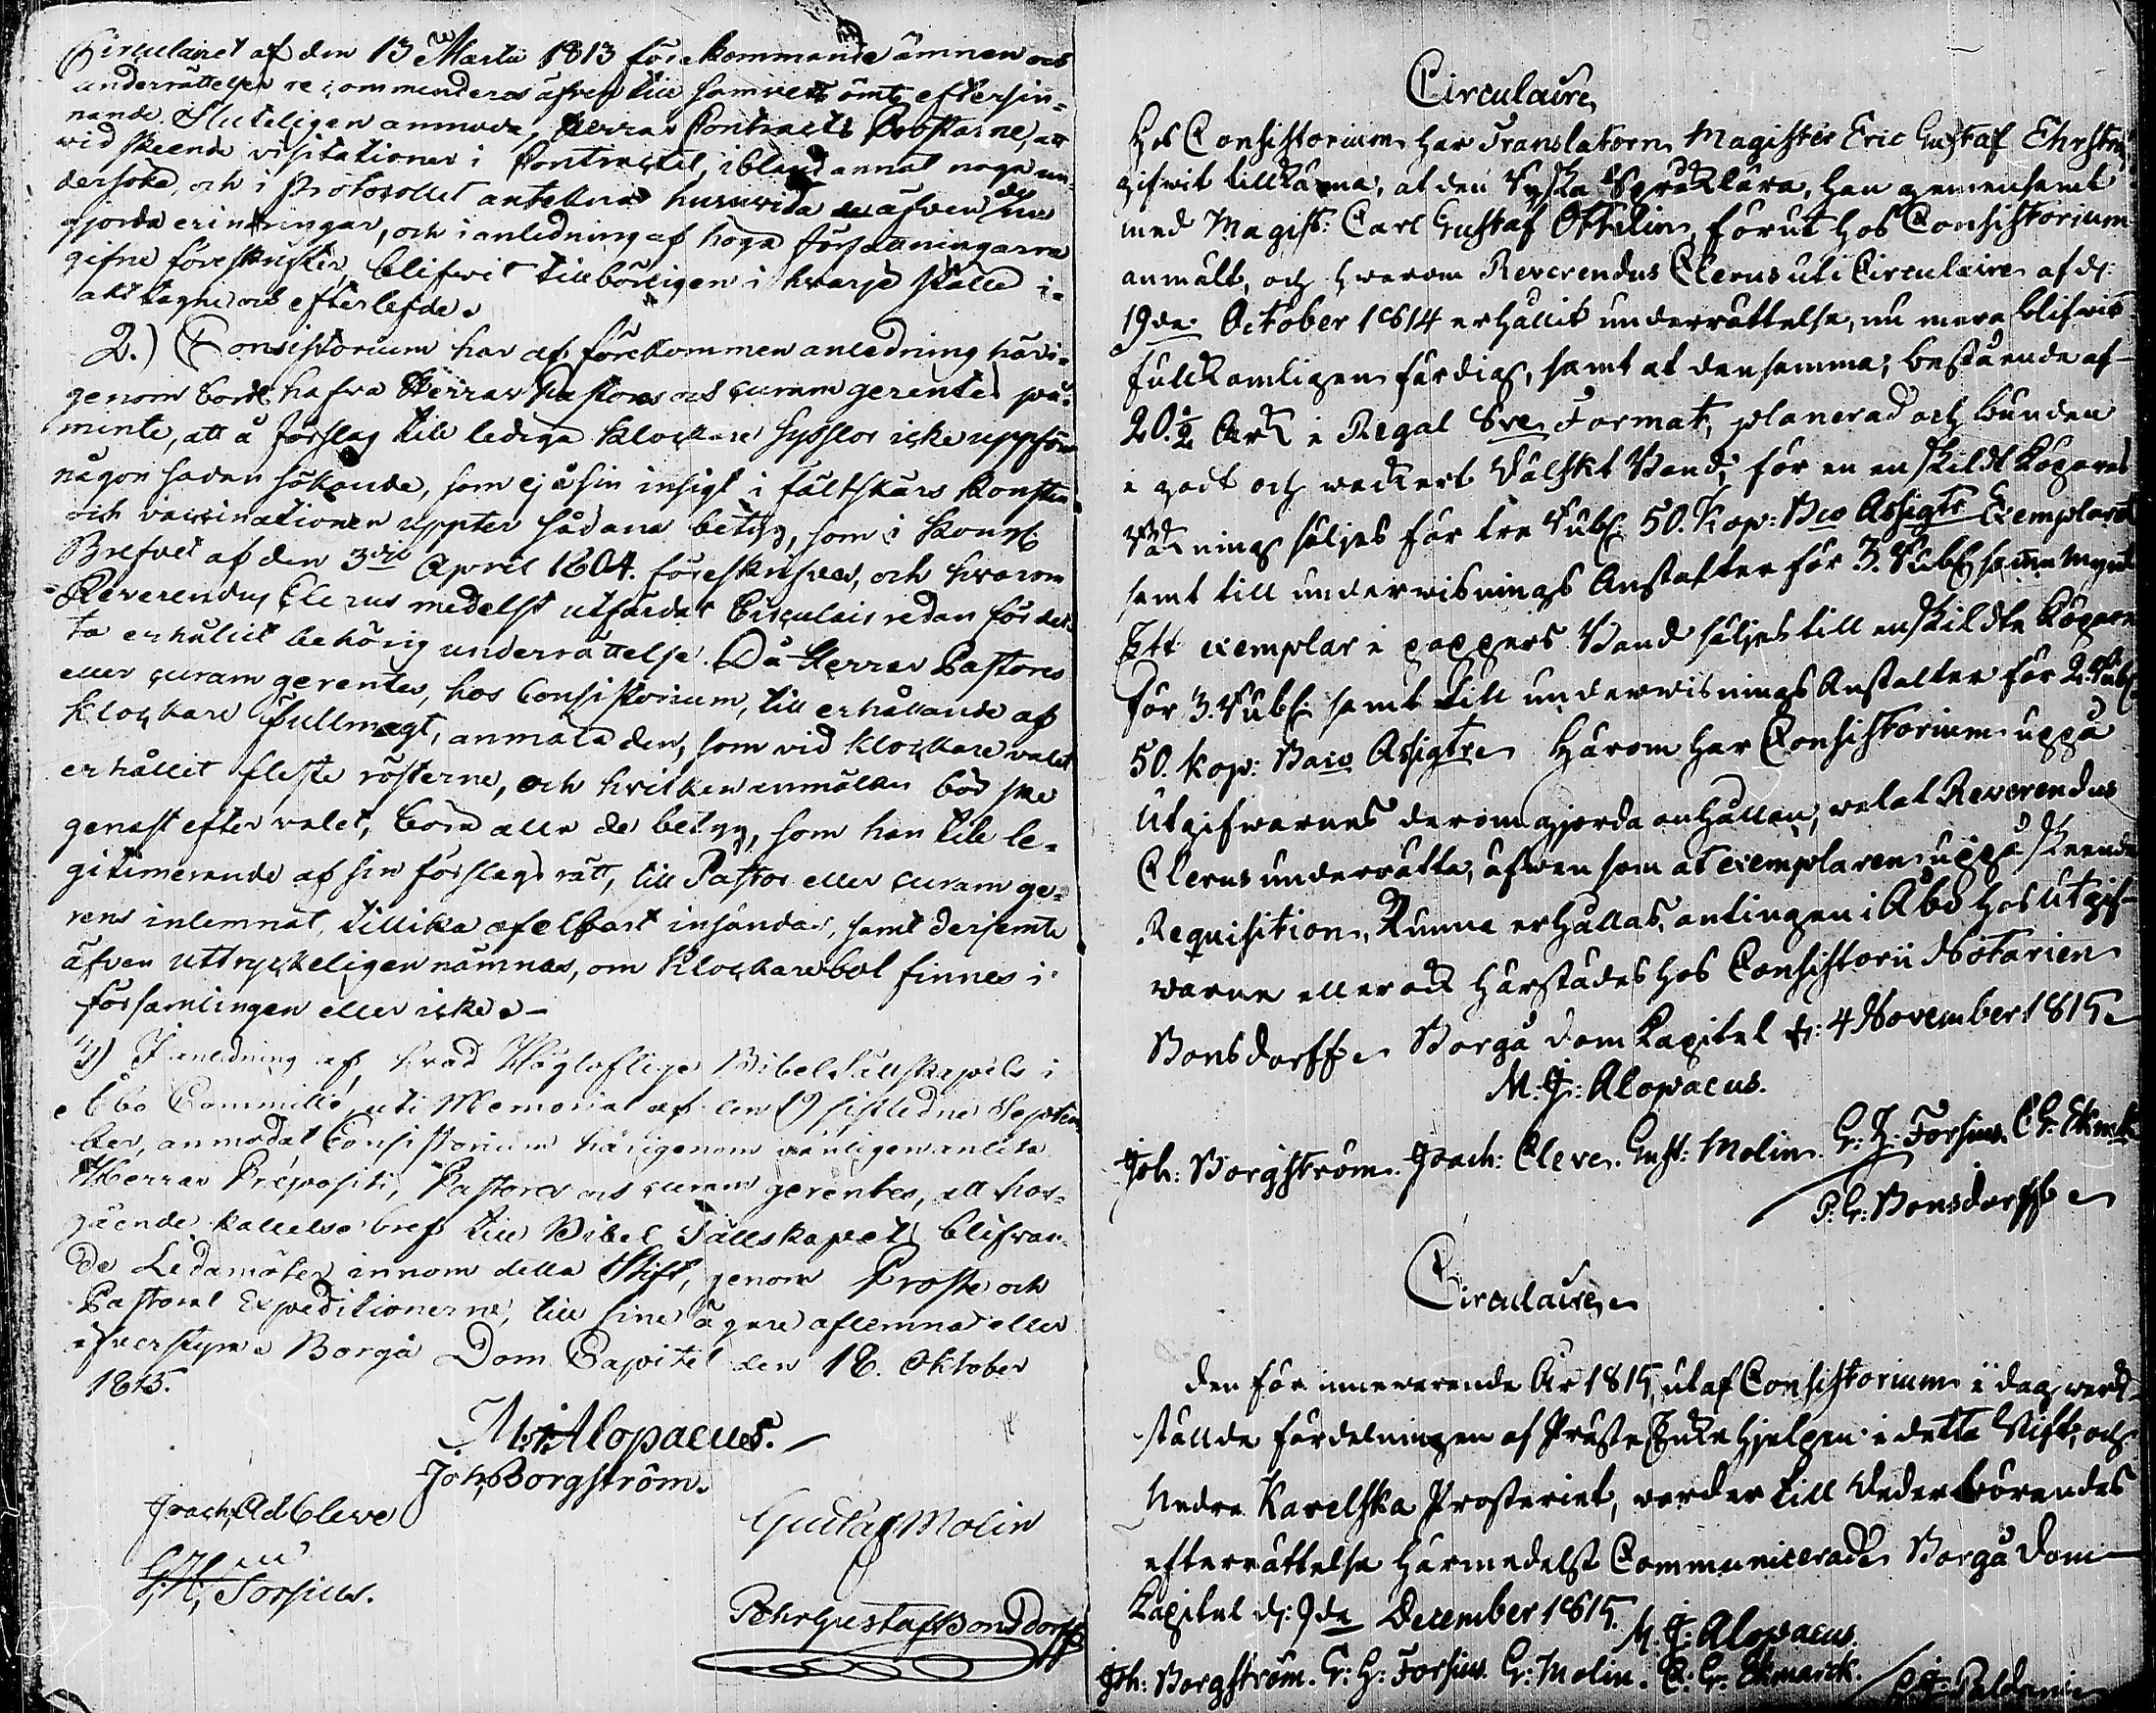 Circulairet af den 13 Martii 1813 förekommande ämnen och
underrättelser recommenderas äfven till samvetts ömt eftersin-
nande. Sluteligen anmodas Herrar Contracts Probstarne, att
vid skeende visitationer i Contractet, ibland annat noga un-
dersöka, och i Protocollet anteckna huruvida de äfven
gjorda erinringar, och i anledning af höga författningarna
gifne föreskrifter blifvit tillbörligen i hvarje ställe i-
akttagne och efterlefde.
2.) Consistorium har af förekommen anledning häri-
genom bordt hafva Herrar Pastores och curam gerentes på-
minte, att å förslag till lediga Klockare Sysslor icke uppföra
någon sådan sökande, som ej å sin insigt i fältskärs Konsten
och vaccinationen uppter sådana betyg, som i Kongl.
Brefvet af den 3dje April 1804. föreskrifves, och hvarom
Reverendus Clerus medelst utfärdat Circulair redan för det-
ta erhållit behörig underrättelse. Då Herrar Pastores
eller curam gerentes, hos Consistorium, till erhållande af
Klockare Fullmagt, anmäla den, som vid Klockare valet
erhållit fleste rösterne, och hvilken anmälan bör ske
genast efter valet, böra alla de betyg, som han till le-
gitimerande af sin förslags rätt, till Pastor eller curam ge-
rens inlemnat, tillika ofelbart insändas, samt dersemte
äfven uttryckeligen nämnas, om Klockarebol finnes i
församlingen eller icke. -
3) I anledning af, hvad Högloflige Bibel Sällskapets i
Åbo Committé, uti Memorial af den 19 sistledne Septem
ber, anmodat, Consistorium härigenom vänligen anlita
Herrar Præpositi, Pastores och curam gerentes, att här-
gående kallelse bref till Bibel Sällskapets blifvan-
de Ledamöter innom detta Stift, genom Proste och
Pastoral Expeditionerne, till sine ägare aflemnas eller
öfverstyra. Borgå Dom Capitel den 18. Oktober
1815.
M: Alopaeus.
Joh. Borgström.
Joach. Ad. Cleve
Gustaf Molin
G. H. Forsius.
Pehr Gustaf Bonsdorff
Circulaire
Hos Consistorium har Translatorn Magister Eric Gustaf Ehrström
gifwit tillkänna, at den Ryska Språklära, han gemensamt
med Magist: Carl Gustaf Ottelin, förut hos Consistorium
anmält, och hwarom Reverendus Clerus uti Circulaire af d:
19de October 1814 erhållit underrättelse, nu mera blifwit
fullkomligen färdig, samt at densamma, bestående af
20.½ Ark i Regal 8vo Format, planerad och bunden
i godt och wackert Wälskt Band, för en enskildt Köpares
räkning säljes för tre Rubl: 50. Kop: Bco Assigtr Exemplaret
samt till underwisnings Anstalter för 3. Rubl: samma mynt
Ett exemplar i pappers Band säljes till enskildta Köpare
för 3. Rubl: samt till underwisnings Anstalter för 2. Rubl
50. kop: Banco Assigtr. Härom har Consistorium uppå
Utgifwarnes derom gjorda anhållan, welat Reverendus
Clerus underrätta, äfwen som at exemplaren uppå skeende
Requisition, kunna erhållas, antingen i Åbo hos Utgif-
warne eller ock härstädes hos Consistorii Notarien
Bonsdorff. Borgå Dom Kapitel d: 4 November 1815.
M. J: Alopæus.
Joh: Borgström. Joach: Cleve. Gust: Molin. G: H: Forsius. C G: Ekmark
P. G: Bonsdorff
Circulaire
Den för innewarande År 1815, utaf Consistorium i dag werk-
ställde fördelningen af Prästе Enke hjelpen i detta Stift, och
Nedre Karelska Prosteriet, warder till Wederbörandes
efterrättelse härmedelst Communicerad. Borgå Dom
Kapitel d: 9de December 1815.
M. J: Alopæus.
Joh: Borgström. G: H: Forsius. G: Molin. C: G: Ekmarck.